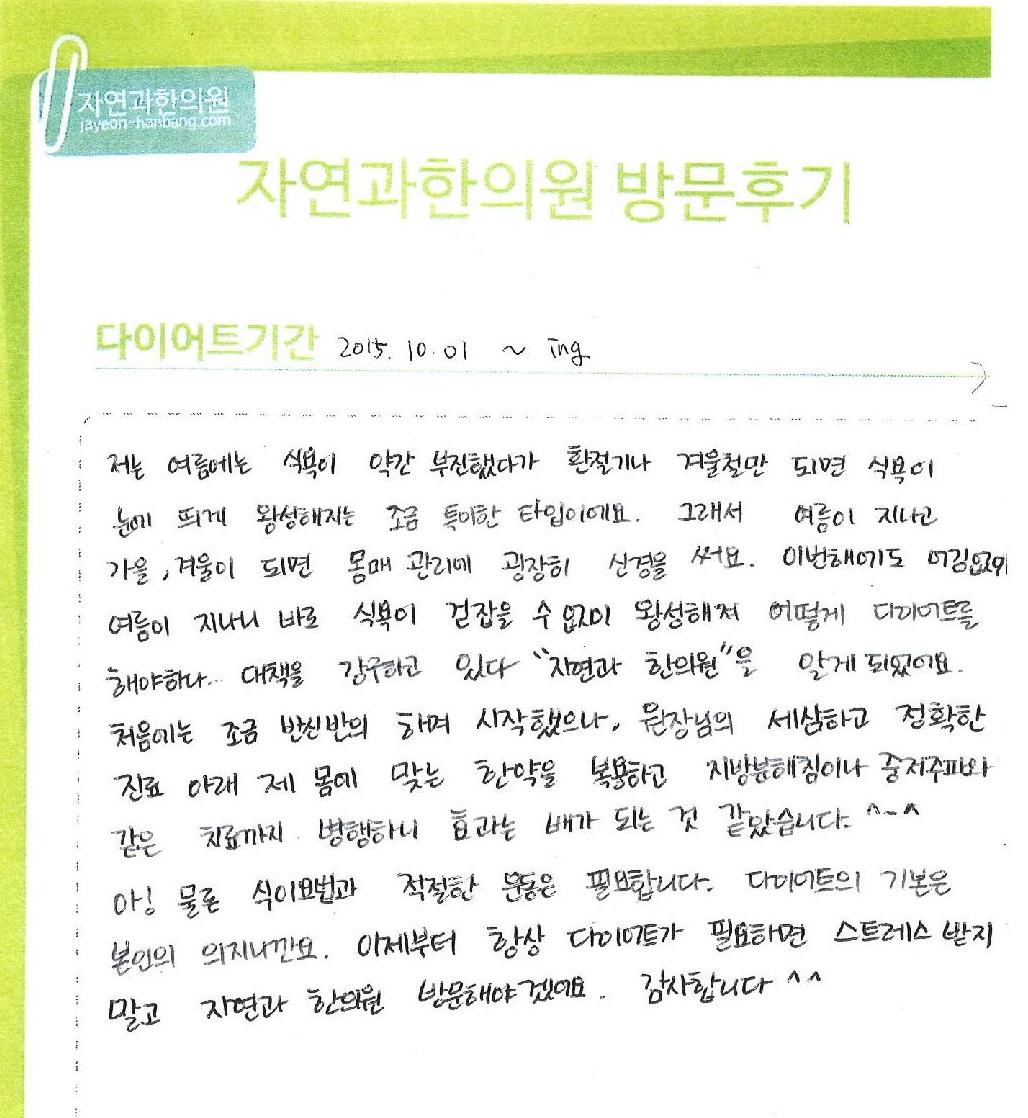 자연과한의원
jayeon-hanbang.com
자연과한의원 방문후기
다이어트기간 2015. 10. 01 ~ ing
저는 여름에는 식욕이 약간 부진했다가 환절기나 겨울철만 되면 식욕이
눈에 띄게 왕성해지는 조금 특이한 타입이에요. 그래서 여름이 지나고
가을, 겨울이 되면 몸매 관리에 굉장히 신경을 써요. 이번해에도 어김없이
여름이 지나니 바로 식욕이 걷잡을 수 없이 왕성해져 어떻게 다이어트를
해야하나.. 대책을 강구하고 있다 "자연과 한의원"을 알게 되었어요.
처음에는 조금 반신반의 하며 시작했으나, 원장님의 세심하고 정확한
진료 아래 제 몸에 맞는 한약을 복용하고 지방분해침이나 중저주파와
같은 치료까지 병행하니 효과는 배가 되는 것 같았습니다. ^-^
아! 물론 식이요법과 적절한 운동은 필요합니다. 다이어트의 기본은
본인의 의지니깐요. 이제부터 항상 다이어트가 필요하면 스트레스 받지
말고 자연과 한의원 방문해야겠어요. 감사합니다 ^^